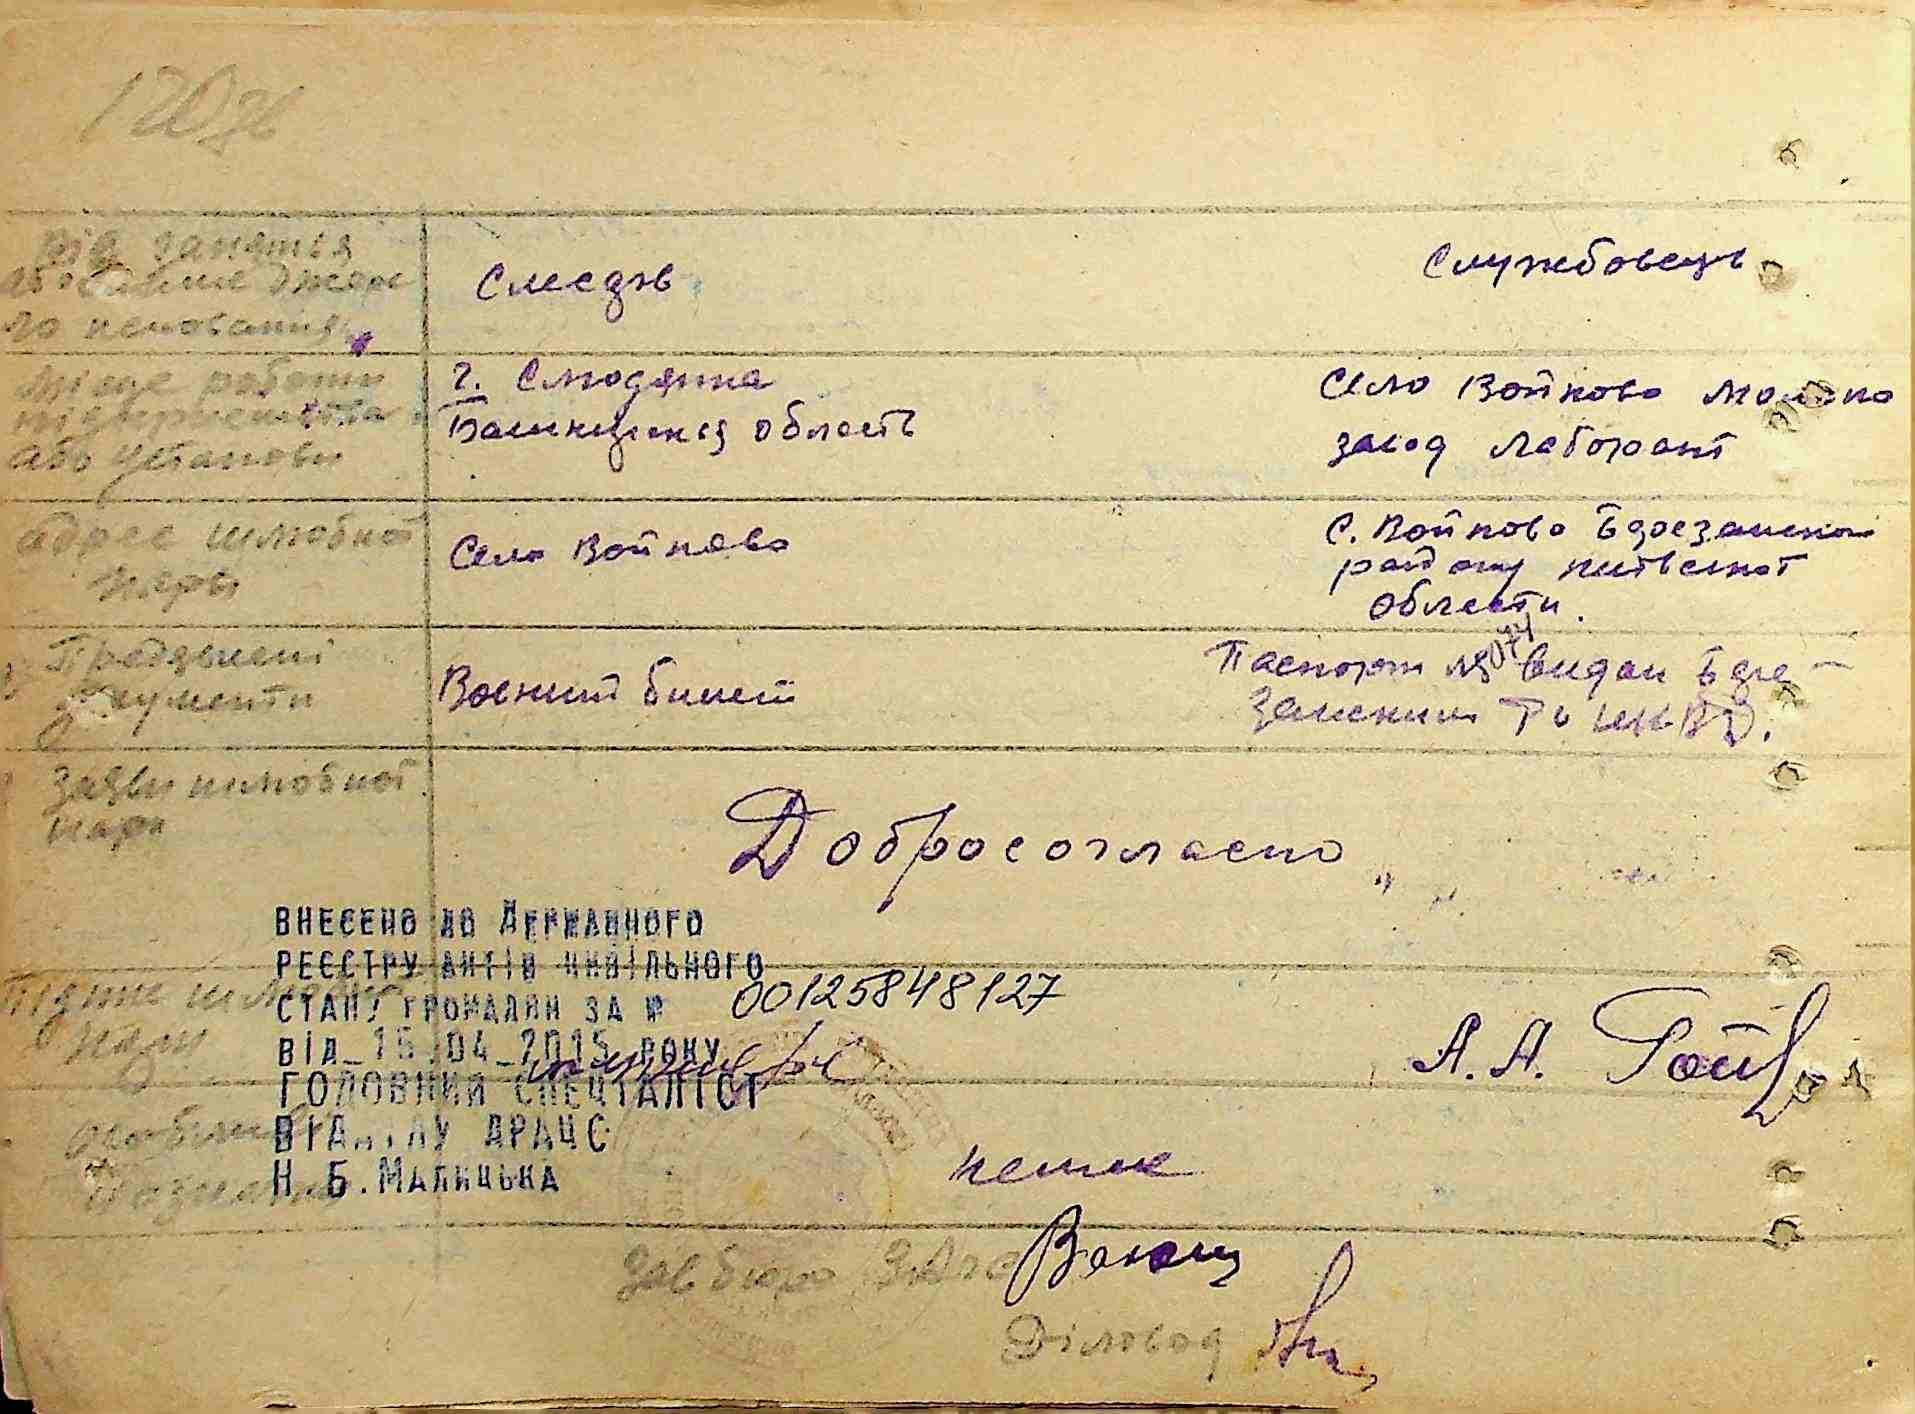 120
Від заняття
або
ло існування
Службовець
Місце роботи
підприємства
або установи
г. Слюдянка
область
Село Войково Молоко
завод лаборант
Адрес шлюбної
пари
Село Войково
с. Войково Березанского
району київської
області.
Предявлені
документи
Воєнний билет
Паспорт № 074 видан Бере-
занским Ро НКВД.
Заяви шлюбної
пари
Добросогласно
ВНЕСЕНО ДО ДЕРЖАВНОГО
РЕЄСТРУ АКТІВ ЦИВІЛЬНОГО
СТАНУ ГРОМАДЯН ЗА № 00125848127
ВІД_15.04_2015 РОКУ
ГОЛОВНИЙ СПЕЦІАЛІСТ
ВІДДІЛУ ДРАЦС
Н.Б.МАЛИЦЬКА
шлюбної
пари
А. А.
Особливі
немає
Зав бюро ЗАГС
Діловод